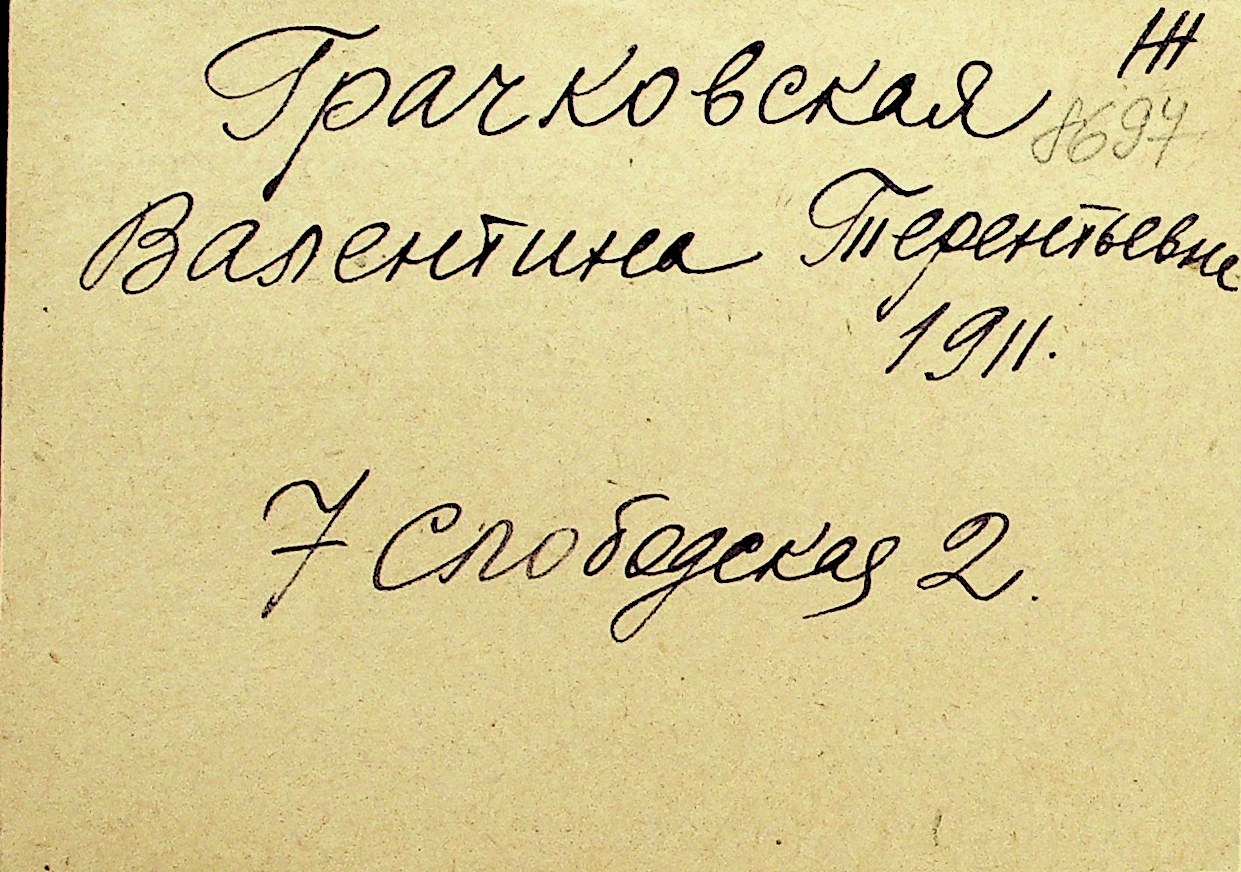 Грачковская Ж
8697
Валентина Терентьевна
1911.
7 Слободская 2.